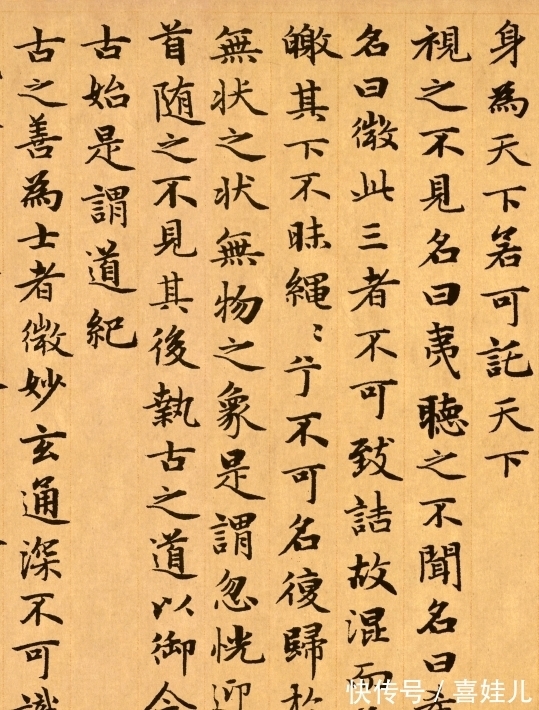 身為天下若可託天下
視之不見名曰夷聽之不聞名曰希
名曰微此三者不可致詰故混而
皦其下不昧繩〻兮不可名復歸於
無状之状無物之象是謂忽恍迎
首随之不見其後執古之道以御今
古始是謂道紀
古之善為士者微妙玄通深不可識
快传号/喜娃儿